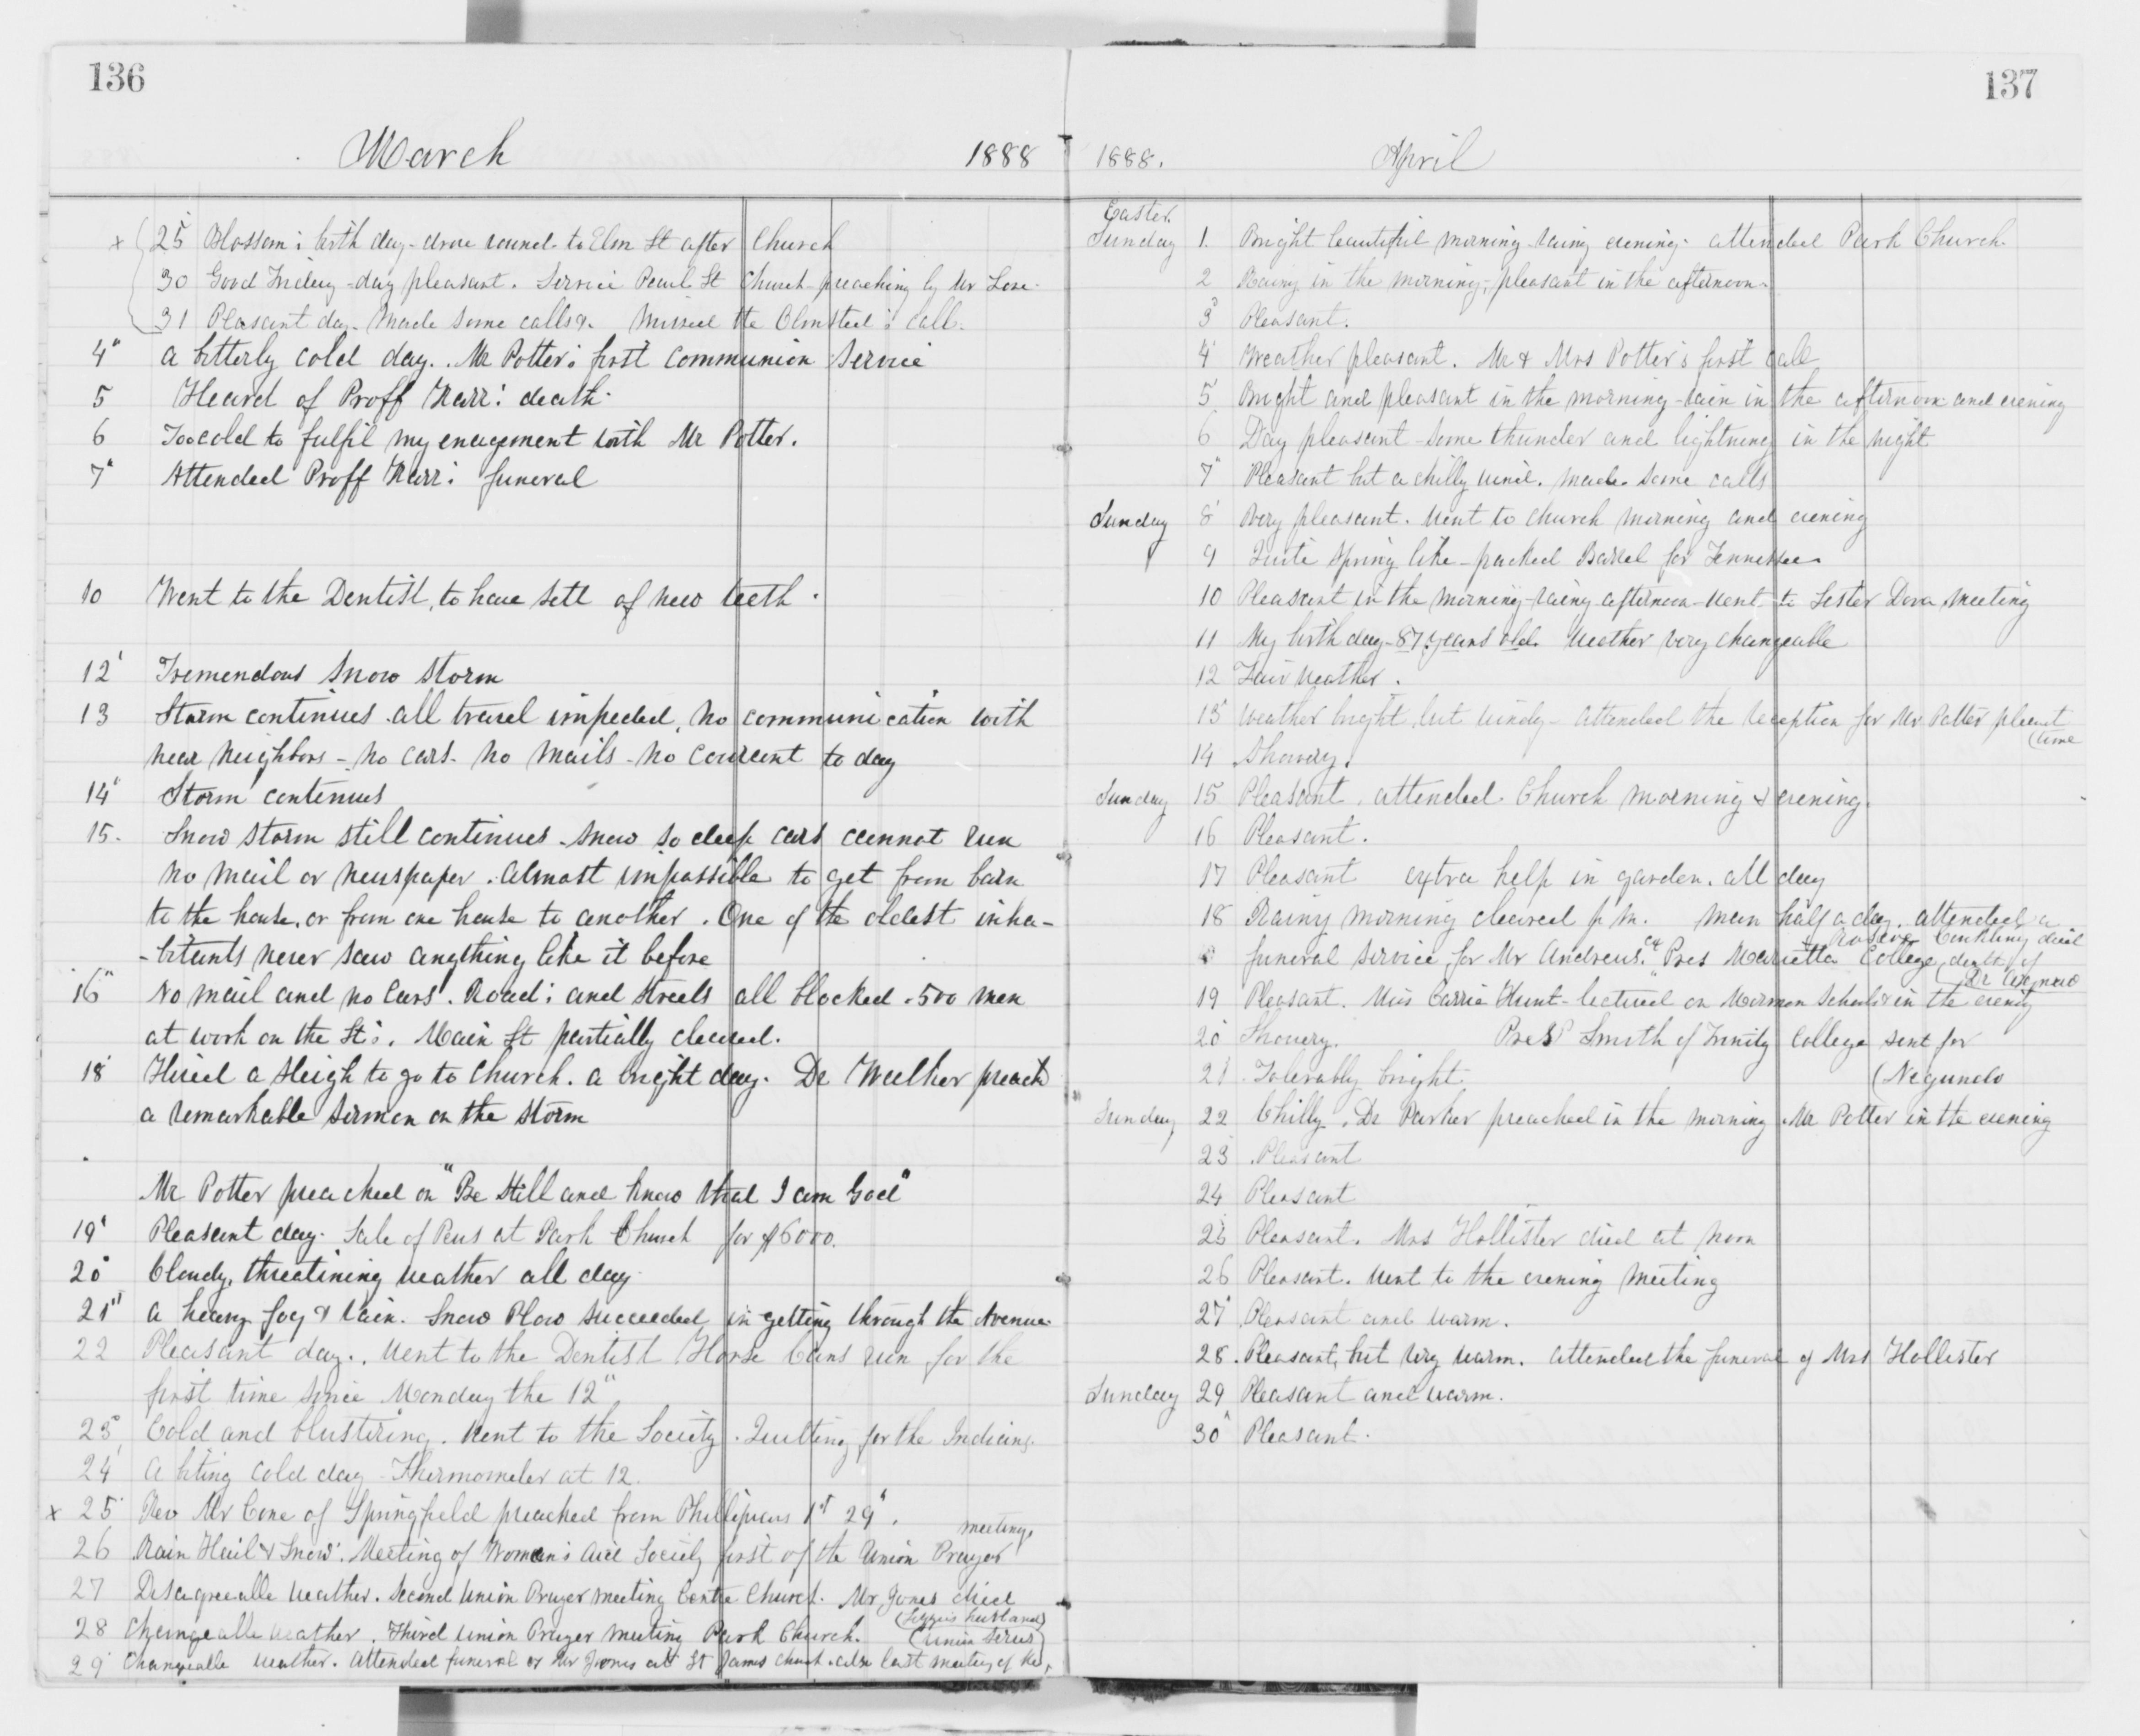 136
March 1888
x 25 Blossom's birth day - drove round to Elm St after Church
30 Good Friday - day pleasant. Service Pearl St Church - preaching by Mr Love.
31 Pleasant day. Made some calls. Missed the Olmsted's call.
4" A bitterly cold day. Mr Potter's first communion service
5 Heard of Proff Karr's death.
6 Too cold to fulfil my enagement with Mr Potter.
7" Attended Proff Karr's funeral
10 Went to the Dentist, to have sett of new teeth.
12' Tremendous snow storm
13 Storm continues all travel impeded, no communication with
near neighbors - no cars - no mails - no Courant to day
14" Storm continues
15. Snow storm still continues - snow so deep cars cannot run
no mail or newspaper. Almost impossible to get from barn
to the house, or from one house to another. One of the oldest inha-
-bitants never saw anything like it before
16" No mail and no Cars. Road's and streets all blocked - 500 men
at work on the St's. Main St partially cleared.
18 Hired a sleigh to go to Church. A bright day. Dr Walker preach
a remarkable sermon on the storm
Mr Potter preached on "Be still and know that I am God"
19' Pleasant day. Sale of Pews at Park Church for $6000.
20" Cloudy, threatining weather all day
21" A heavy fog & rain. Snow Plow succeeded in getting through the Avenue.
22 Pleasant day. Went to the Dentist Horse Cars run for the
first time since Monday the 12"
23" Cold and blustiring. Went to the Society. Quilting for the Indians.
24' A biting cold day - Thermometer at 12.
x 25 Rev Mr Cone of Springfield preached from Phillipians 1st 29".
meetings
26 Rain Hail & Snow. Meeting of Woman's Aid Society first of the Union Prayer
27 Disagreeable weather. Second Union Prayer meeting Centre Church. Mr Jones died
(Lizzie's husband)
28 Changeable weather. Third Union Prayer meeting Park Church.
(Union series)
29 Changeable weather. Attended funeral of Mr Jones at St James church. also last meeting of the
137
1888. April
Easter
Sunday 1. Bright beautiful morning - rainy evening - attended Park Church.
2 Rainy in the morning, pleasant in the afternoon.
3" Pleasant.
4' Weather pleasant. Mr & Mrs Potter's first call
5' Bright and pleasant in the morning - rain in the afternoon and evening
6 Day pleasant - some thunder and lightning in the night
7" Pleasant but a chilly wind. made some calls
Sunday 8' Very pleasant. Went to church morning and evening
9 Quite spring like - packed Barrel for Tennessee
10 Pleasant in the morning - rainy afternoon - went to Sister Dora meeting
11 My birth day - 87 years old. Weather very changeable
12 Fair weather.
13" Weather bright but windy - attended the reception for Mr Potter pleasant
(time
14 Showery.
Sunday 15 Pleasant. attended Church morning & evening.
16 Pleasant.
17 Pleasant extra help in garden. all day
18 Rainy morning cleared p.m. man half a day. attended a
Roscoe Conkling died
funeral service for Mr Andrews, ex Pres Marietta College, death of
Dr Agnew
19 Pleasant. Miss Carrie Hunt - lectured on Mormon Schools in the evening
20" Showery. Prest Smith of Trinity College sent for
21 Tolerably bright. (Negundo
Sunday 22 Chilly. Dr Parker preached in the morning Mr Potter in the evening
23 Pleasant
24 Pleasant
25 Pleasant. Mrs Hollister died at noon
26 Pleasant. Went to the evening meeting
27" Pleasant and warm.
28. Pleasant, but very warm. Attended the funeral of Mrs Hollister
Sunday 29 Pleasant and warm.
30" Pleasant.